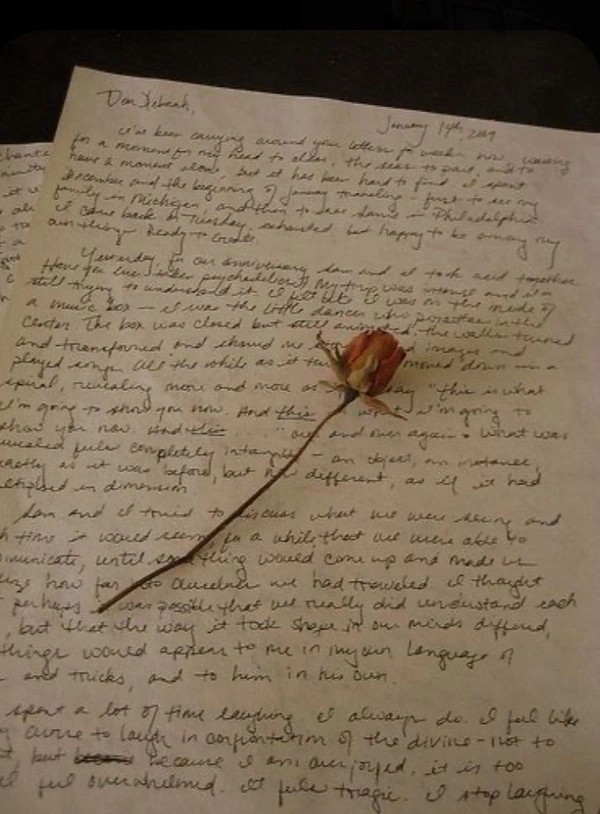 Dear Deborah,
January 14th, 2019
I've been carrying around your letters for weeks now, waiting
for a moment for my head to clear, the seas to part, and to
have a moment alone, but it has been hard to find. I spent
December and the beginning of January traveling – first to see my
family in Michigan, and then to Philadelphia.
I came back on Tuesday, exhausted, but happy to be among my
own things. Ready to create.
Yesterday, for our anniversary, Sam and I took acid together.
Have you ever taken psychedelics? My trip was intense and I'm
still trying to understand it. I felt like I was on the inside of
a music box – I was the little dancer who pirouettes in the
center. The box was closed but still animated. the walls turned
and transformed and showed me images and
played songs. All the while as it moved down in a
spiral, revealing more and more as say "this is what
I'm going to show you now. And this is what I'm going to
show you now. And this . . . . " over and over again. What was
revealed felt completely intangible – an object, an instance,
exactly as it was before, but now different, as if it had
in dimension.
Sam and I tried to discuss what we were seeing and
time it would seem, for a while that we were able to
communicate, until something would come up and made us
how far into ourselves we had traveled. I thought
perhaps it was possible that we really did understand each
, but that the way it took shape in our minds differed,
things would appear to me in my own language of
and tricks, and to him in his own.
spent a lot of time laughing. I always do. I feel like
to laugh in confrontation of the divine – not to
, but because I am overjoyed, it is too
I feel overwhelmed. It feels tragic. I stop laughing